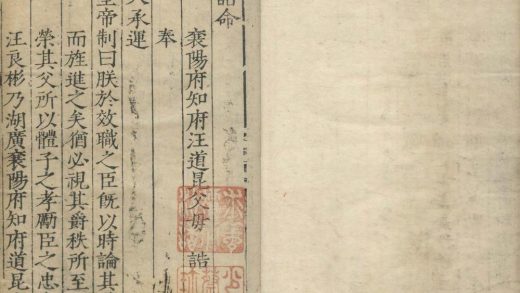 誥命
襄陽府知府汪道昆父母 誥
奉
天承運
皇帝制曰朕於效職之臣旣以時論其
而旌進之矣猶必視其爵秩所至
榮其父所以體子之孝勵臣之忠
汪良彬乃湖廣襄陽府知府道昆